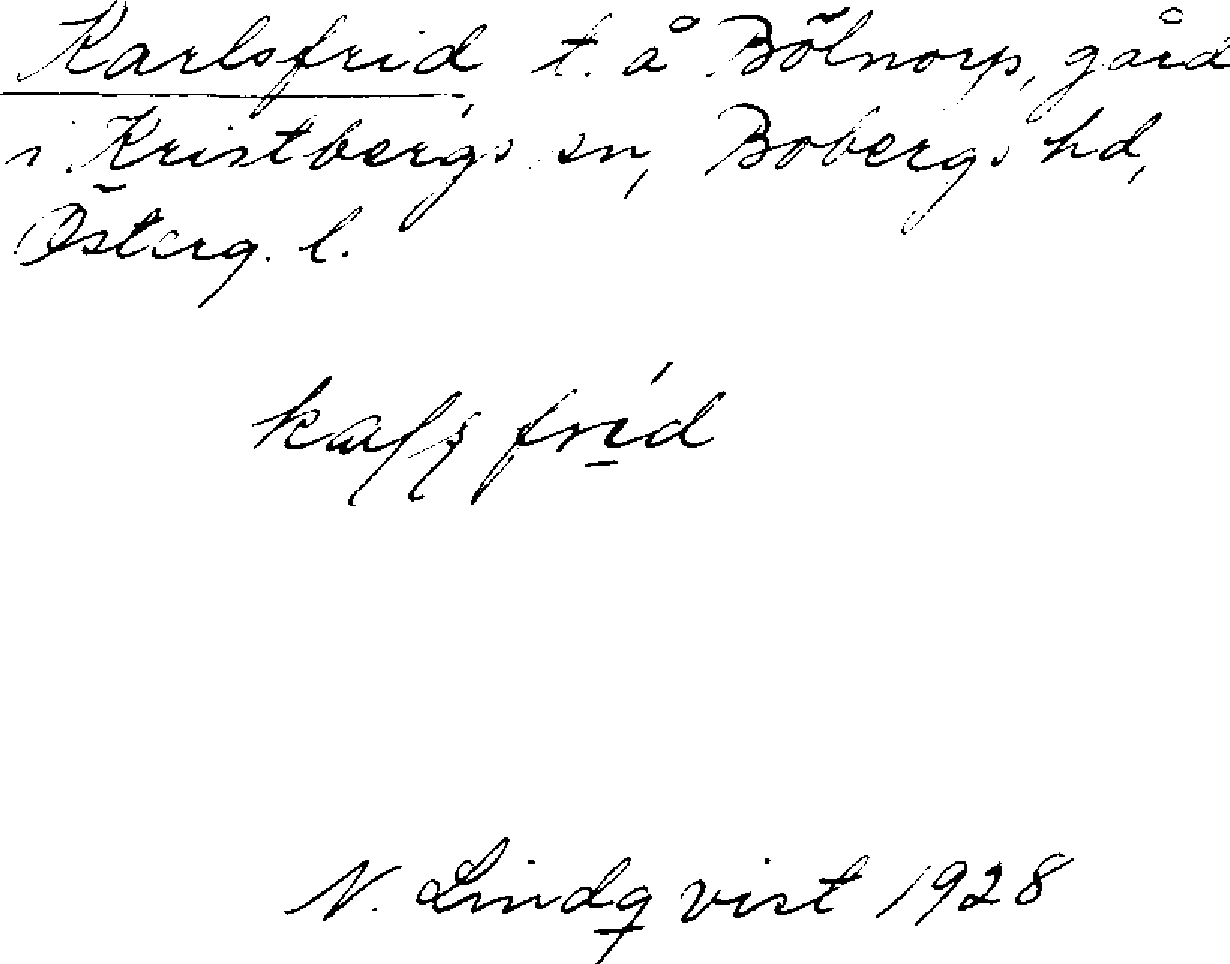 Karlsfrid, t. å Bölnorp, gård
i Kristbergs sn, Bobergs hd,
Österg. l.
N. Lindqvist 1928